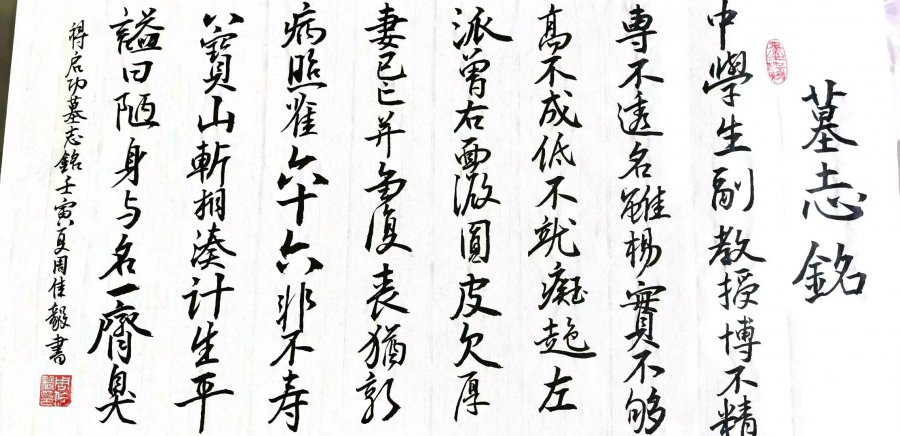 墓志銘
中學生副教授博不精
專不透名雖楊實不够
高不成低不就癡趍左
派曾右面微圓皮欠厚
妻已亡并無復喪猶新
病照舊六十六非不寿
八寶山斬相湊計生平
謚曰陋身与名一齊臭
得启功墓志銘壬寅夏周佳毅書